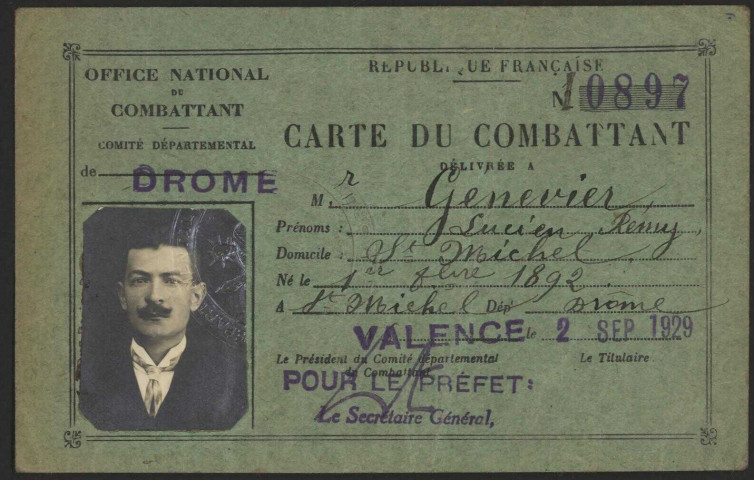 OFFICE NATIONAL
DU
COMBATTANT
COMITÉ DÉPARTEMENTAL
de DROME
RÉPUBLIQUE FRANÇAISE
N 10897
CARTE DU COMBATTANT
DÉLIVRÉE A
M r Genevier
Prénoms : Lucien Rémy,
Domicile : St Michel
Né le 1er 1892
A St Michel Dépt Drome
VALENCE le 2 SEP 1929
Le Président du Comité départemental
du Combattant
Le Titulaire
POUR LE PRÉFET:
Le Secrétaire Général,